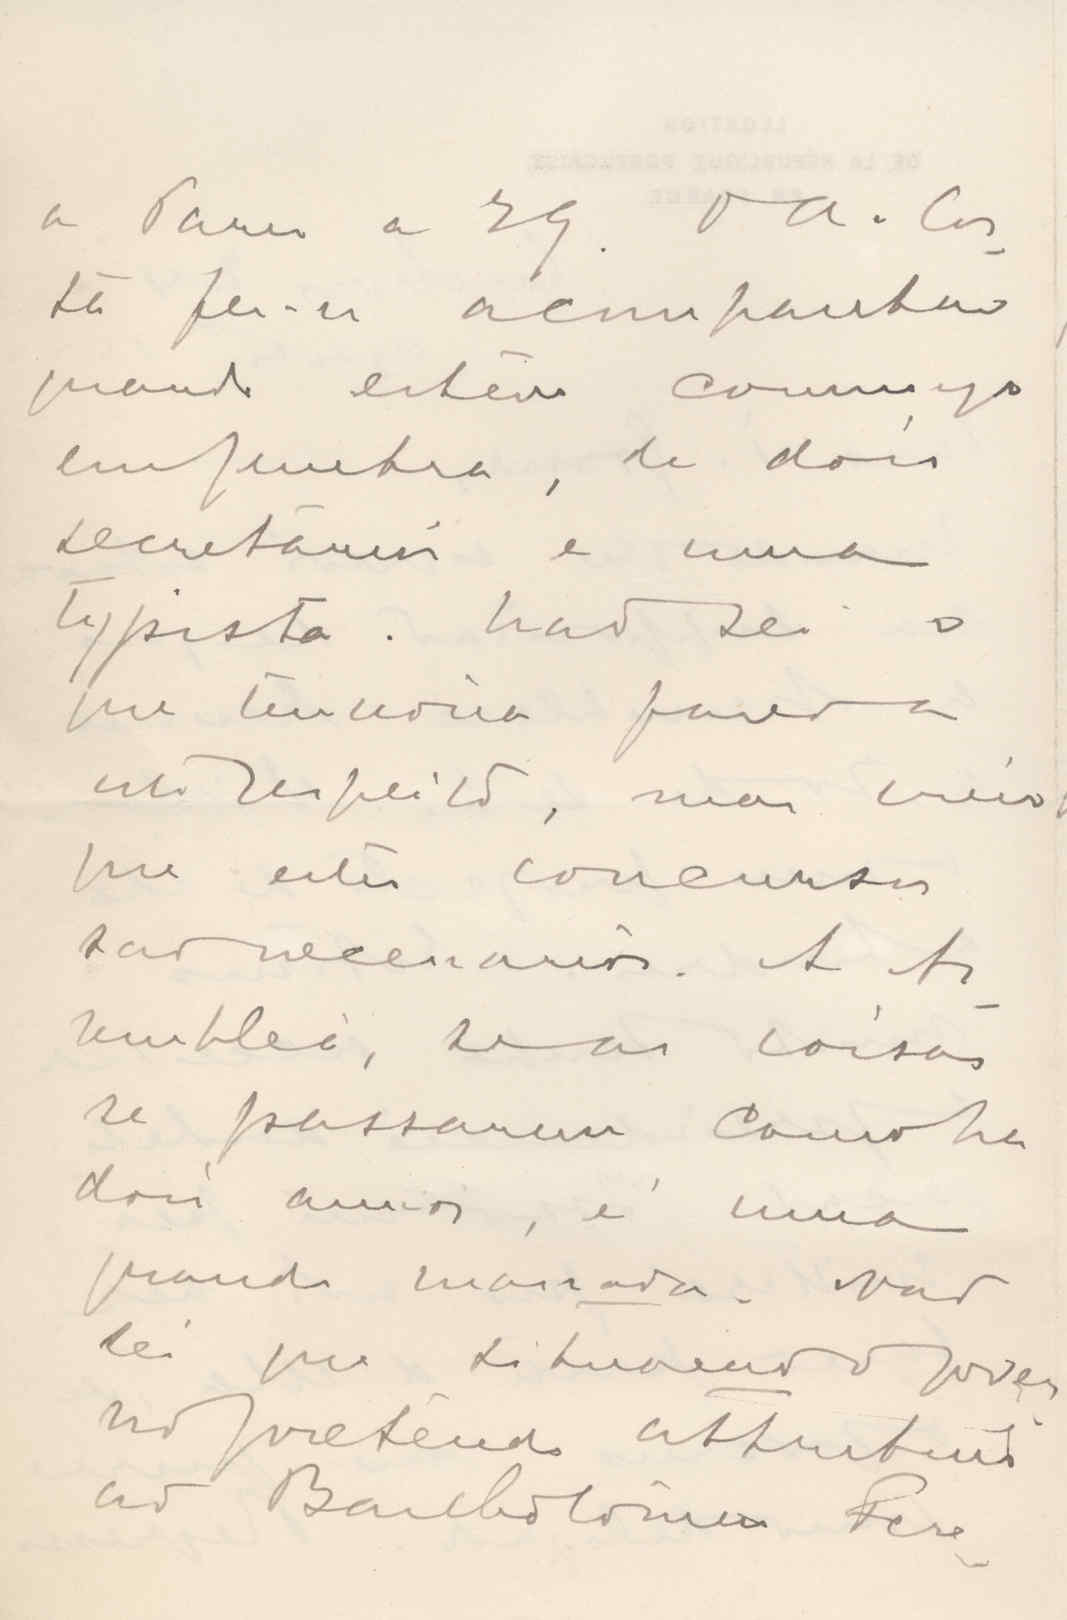 a Paris a 29. O A. Cos-
ta fez-se acompanhar
quando esteve commigo
em Genebra, de dois
secretarios e uma
typista. Não sei o
que tenciona fazer a
este respeito, mas creio
que estes concursos
são necessarios. A As-
semblea, se as coisas
se passarem como ha
dois annos, é uma
grande massada. Não
sei que situação o gover
no pretende attribuir
ao Bartholomeu Fere-